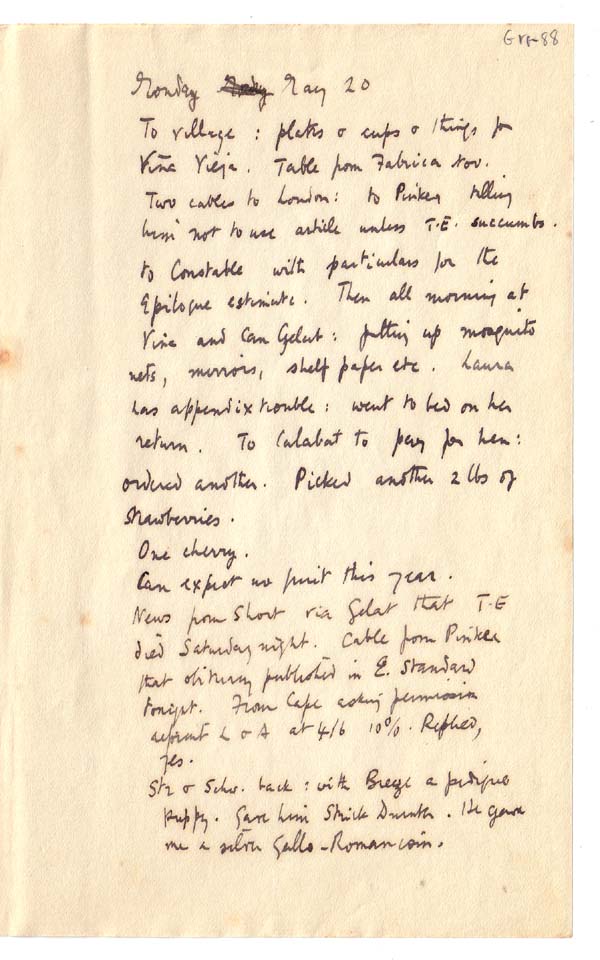 Grg-88
Monday May 20
To village : plates & cups & things for
Viña Vieja. Table from Fabrica tov.
Two cables to London: to Pinker telling
him not to use article unless T.E. succumbs.
to Constable with particulars for the
Epilogue estimate. Then all morning at
Vina and Can Gelat: putting up mosquito
nets, mirrors, shelf paper etc. Laura
has appendix trouble: went to bed on her
return. To Calabat to pay for hen:
ordered another. Picked another 2 lbs of
strawberries.
One cherry.
Can expect no fruit this year.
News from Short via Gelat that T-E
died Saturday night. Cable from Pinker
that obituary published in E. Standard
tonight. From Cape asking permission
reprint L & A at 4/6 10%. Replied,
yes.
Str & Schw. back: with Breeze a pedigree
puppy. Gave him Strick Durnter. He gave
me a silver Gallo-Roman coin.